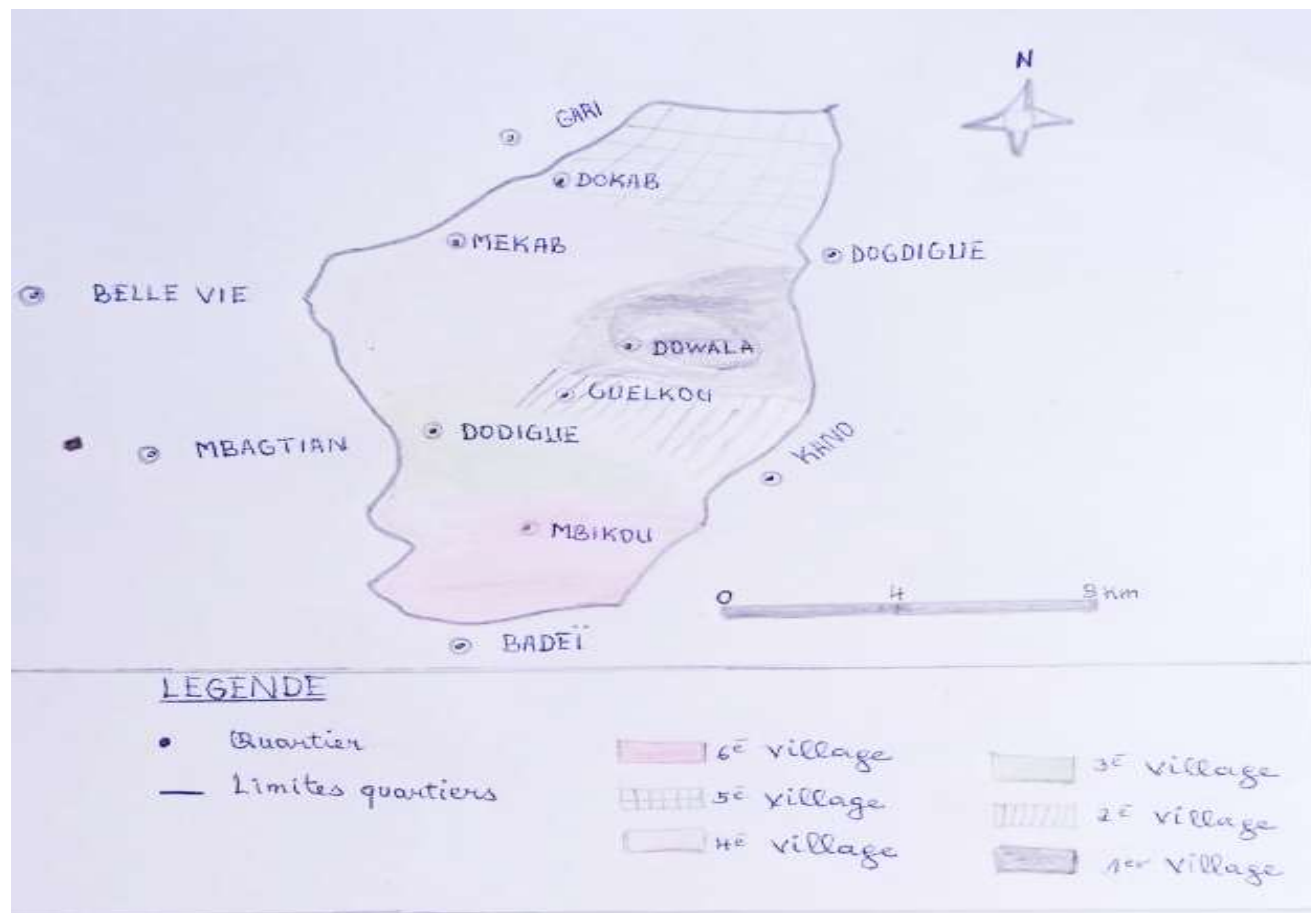 N
GARI
DOKAB
MEKAB
DOGDIGUE
BELLE VIE
DOWALA
GUELKOU
DODIGUE
MBAGTIAN
KANO
MBIKOU
0 4 8 km
BADEÏ
LEGENDE
Quartier
Limites quartiers
6è village
5è village
4è village
3è village
2è village
1er village